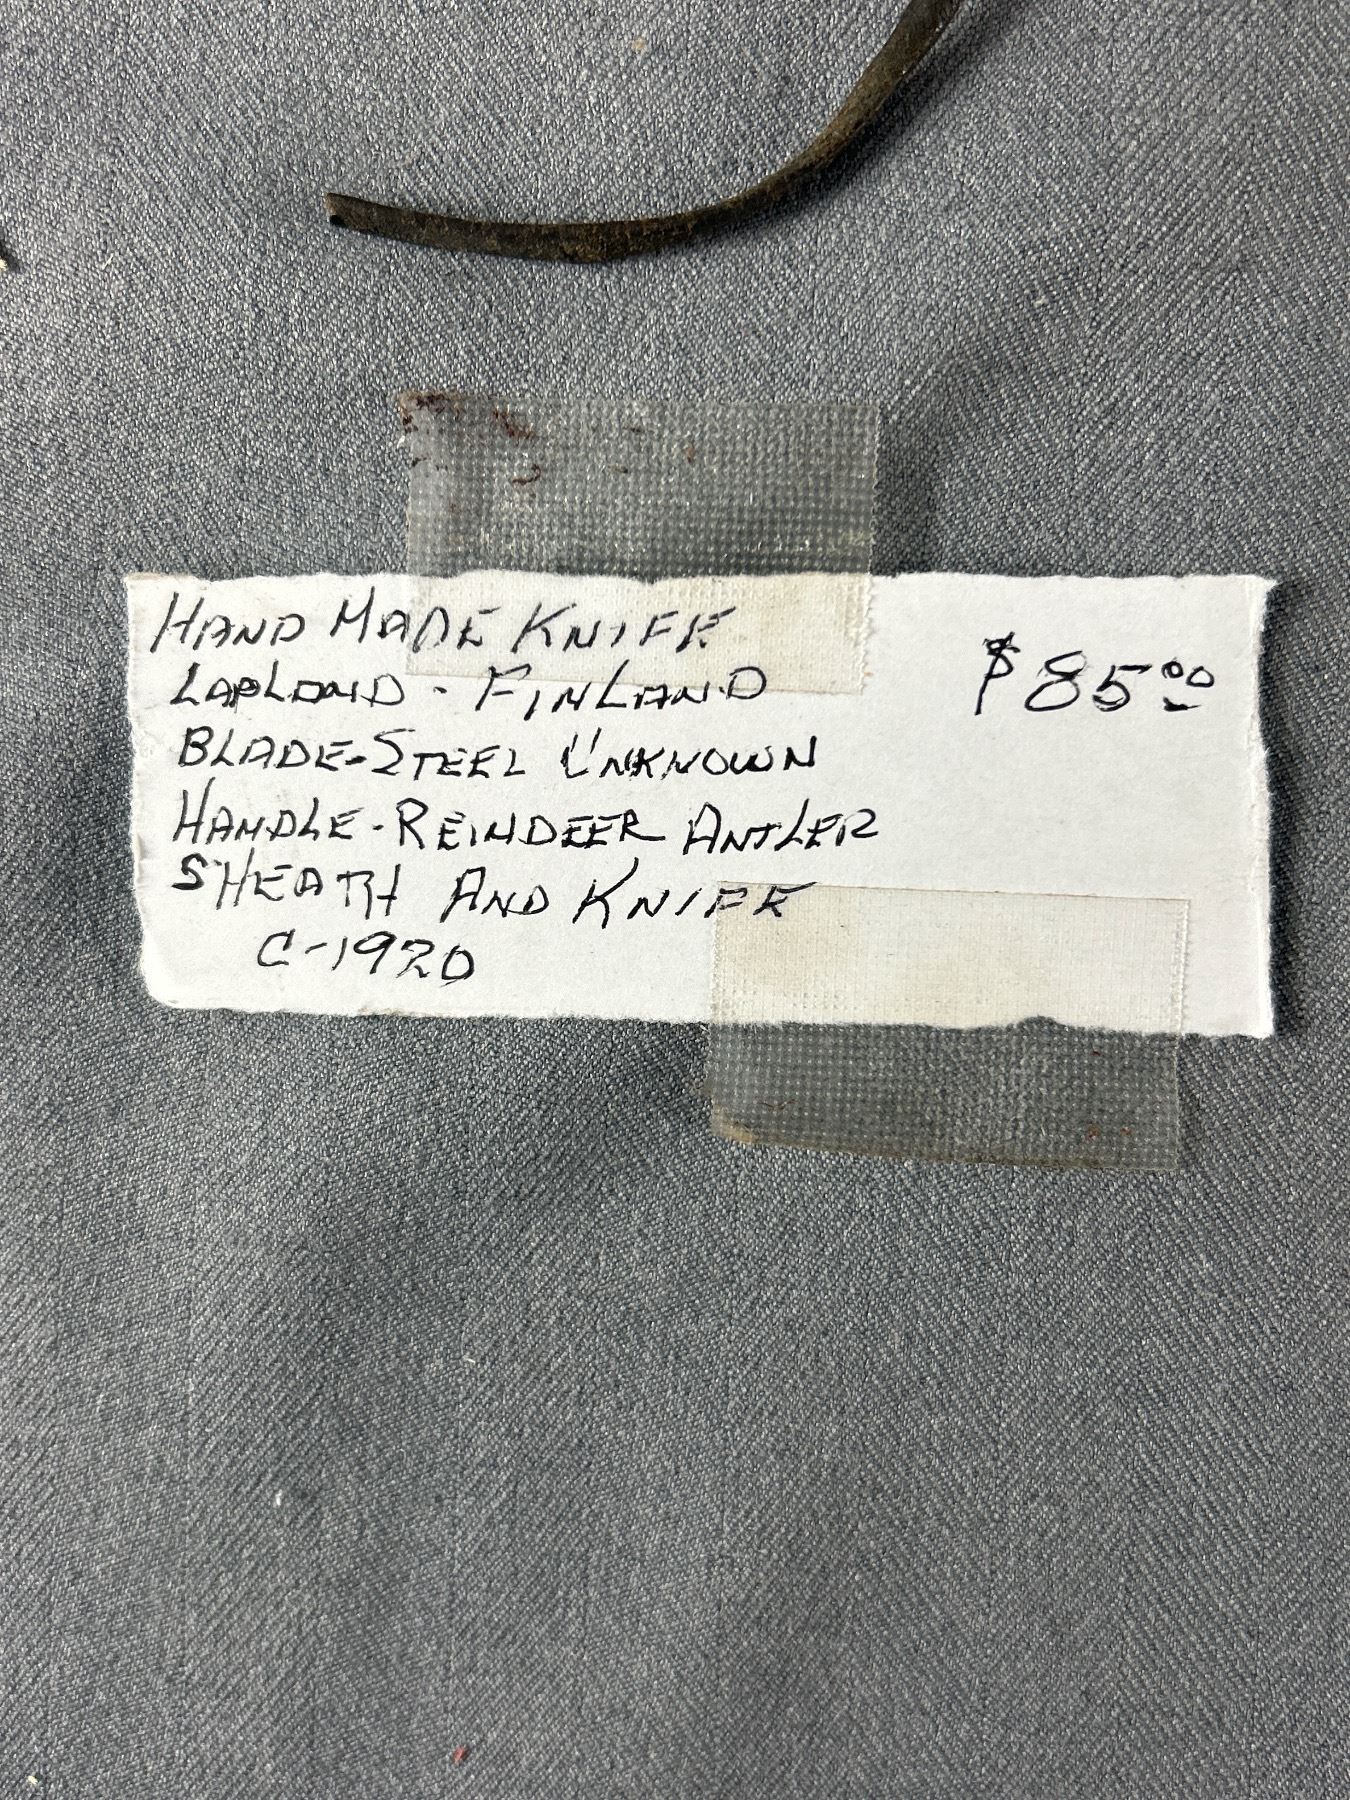 HAND MADE KNIFE
LAPLAND - FINLAND
$85.00
BLADE-STEEL UNKNOWN
HANDLE-REINDEER ANTLER
SHEATH AND KNIFE
C-1920